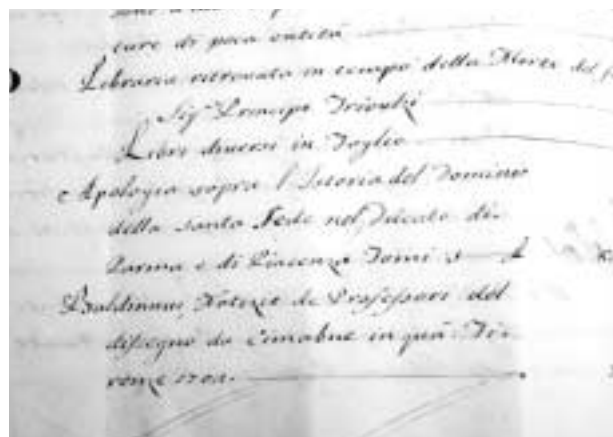 cure di poca entità
Libraria ritrovata in tempo della Morte del
Sig.r Principe Trivulzi
Libri diversi in Foglio
Apologia sopra l'Istoria del Dominio
della santa Sede nel Ducato di
Parma e di Piacenza Tomi
Baldinucci Notizie de Professori del
disegno da Cimabue in quà. Fi-
renze